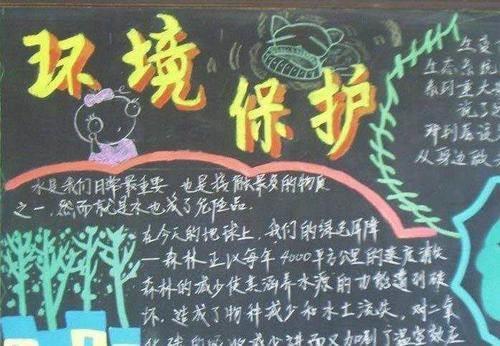 环境保护
水是我们日常最重要，也是接触最多的物质
之一，然而就是水也成了危险品。
在今天的地球上，我们的绿色屏障
—森林正以每年4000平方公里的速度消失
森林的减少使其涵养水源的功能遭到破
坏，造成了物种减少和水土流失，对二氧
化碳的吸收减少进而又加剧了温室效应
生态系统
系列重大
从身边做